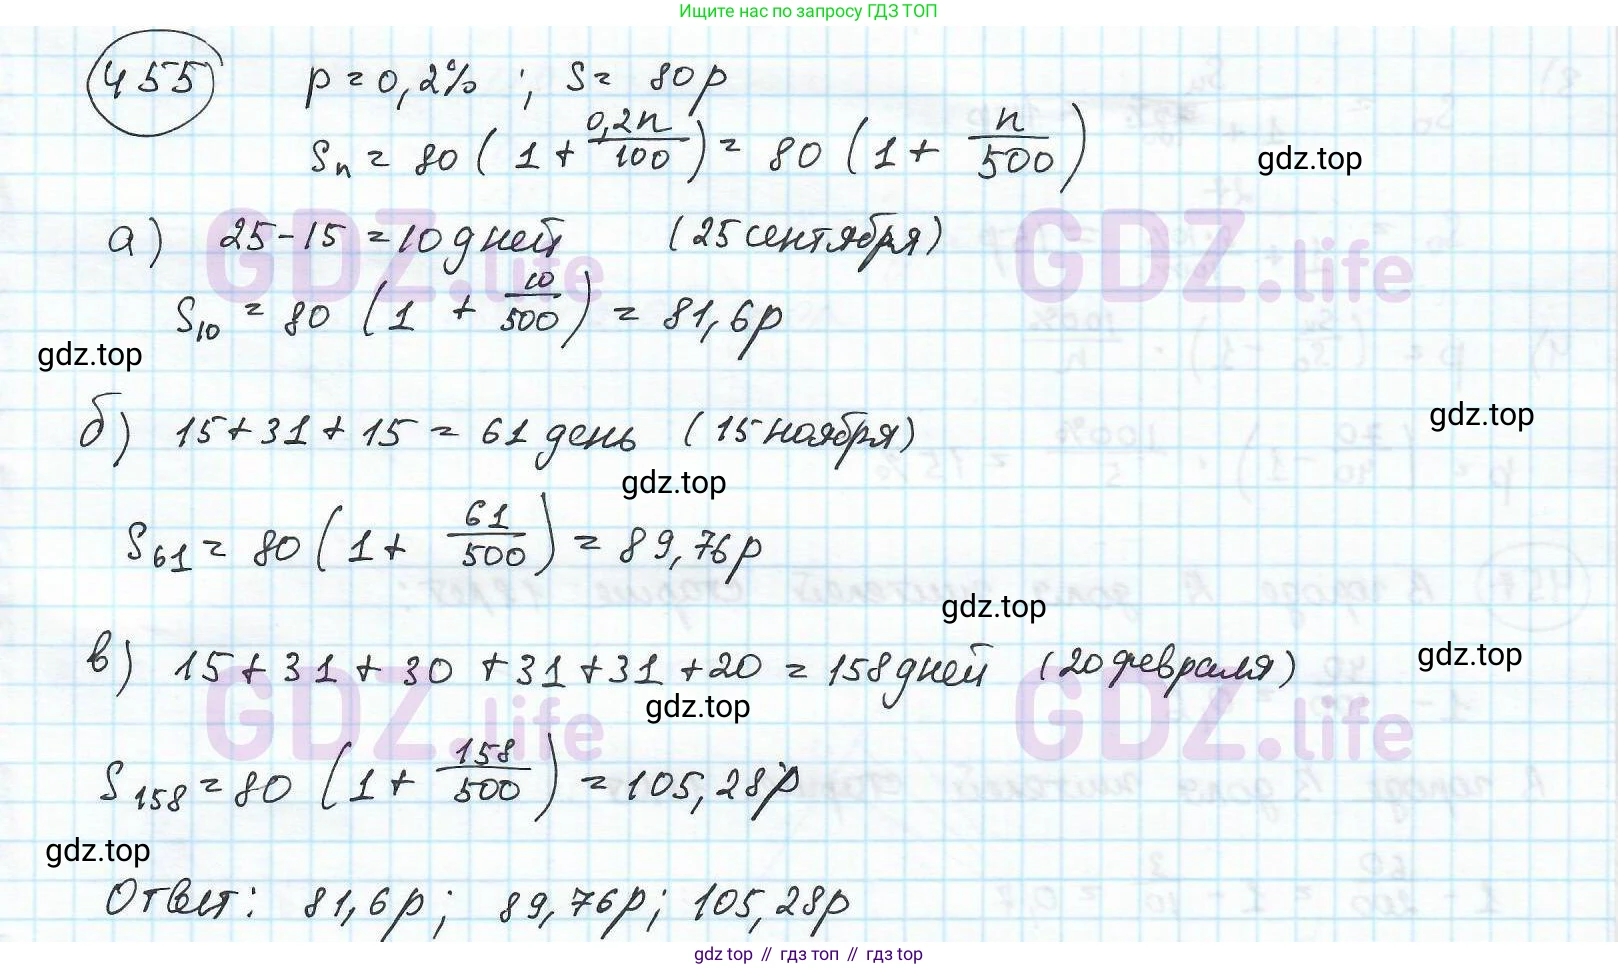 Ищите нас по запросу ГДЗ ТОП
455 p = 0,2% ; S = 80р
Sn = 80 ( 1 + 0,2n/100 ) = 80 ( 1 + n/500 )
gdz.top
а) 25 - 15 = 10 дней (25 сентября)
GDZ.life GDZ.life
S10 = 80 ( 1 + 10/500 ) = 81,6р
gdz.top
gdz.top
б) 15 + 31 + 15 = 61 день ( 15 ноября)
gdz.top
S61 = 80 ( 1 + 61/500 ) = 89,76р
gdz.top
в) 15 + 31 + 30 + 31 + 31 + 20 = 158 дней (20 февраля)
gdz.top
gdz.top
GDZ.life GDZ.life
S158 = 80 ( 1 + 158/500 ) = 105,28р
gdz.top
Ответ: 81,6р; 89,76р; 105,28р
gdz top // гдз топ // гдз top